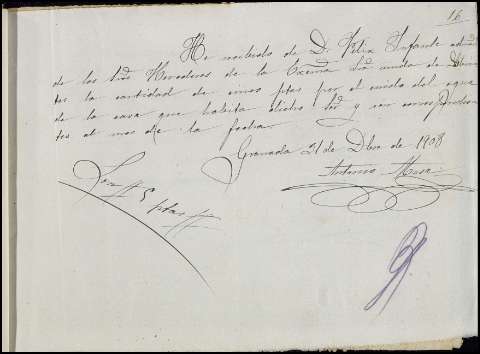 16
He recibido de D. Felix Infante
de los Sres Herederos de la Excma Sra viuda de
tes la cantidad de cinco ptas por el del agua
de la casa que habita dicho Sor y
tes al mes de la fecha.
Granada 21 de Dbre de 1908
Antonio
Son 5 ptas